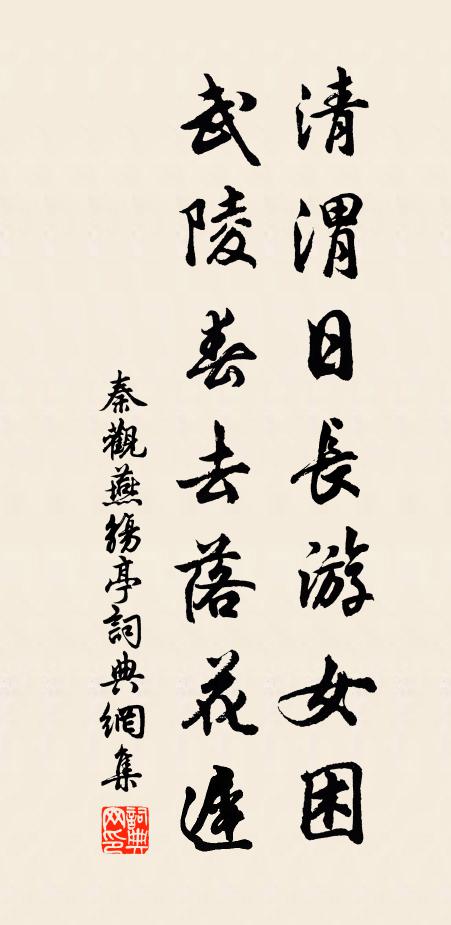 清渭日長游女困
武陵春去落花遲
秦觀燕觴亭詞典網集
詞典
网印